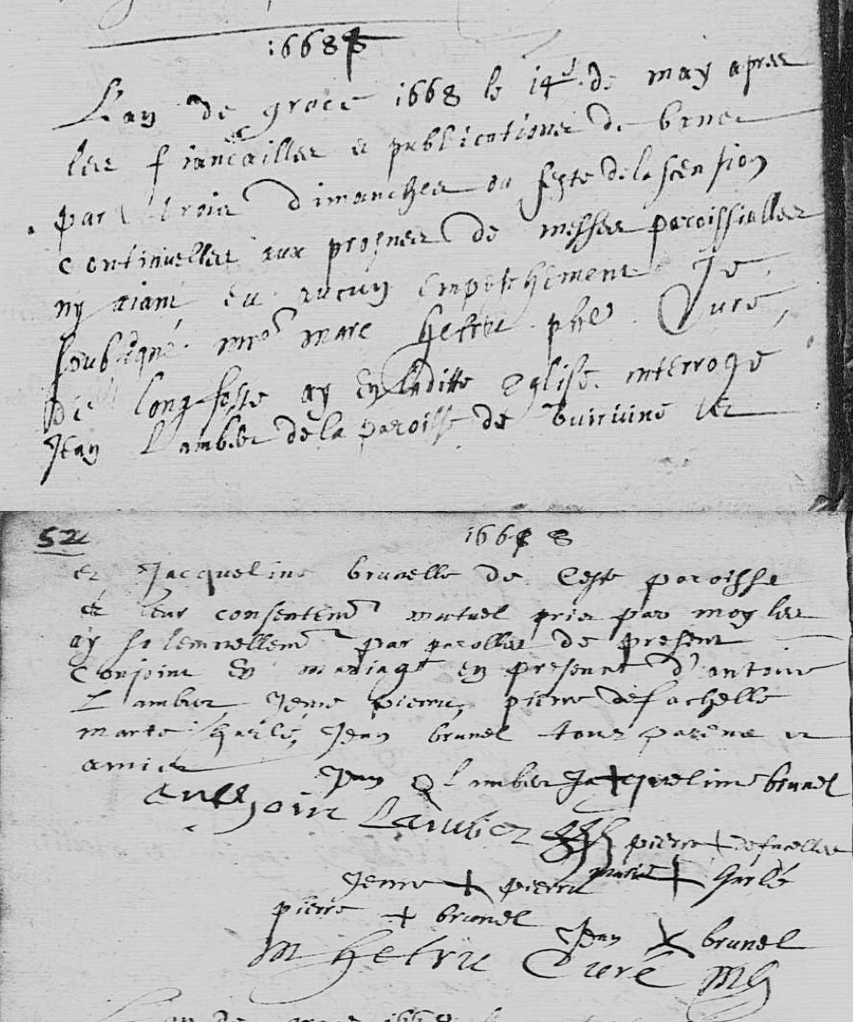 1668
L'an de grace 1668 le 14e de may apres
les fiancailles et publications de bans
par trois dimanches ou feste de lascension
continuelles aux prosnes de messes paroissialles
ny aiant eu aucun empeschement Je
soubsigné mre marc hetru pbre Curé
de longfosse ay en laditte Eglise interrogé
Jean Lamber de la paroisse de et
52
1668
et Jacqueline brunelle de Ceste paroisse
et leur consentemt mutuel pris par moy les
ay solemnellemt par parolles de present
Conjoint En mariage en presence d'antoine
Lamber Jenne pierru, pierre defachelle
marie harlé, Jean brunel tous parens et
amis
Jean lamber Jacqueline brunel
anthoine Lamber pierre defacelle
Jenne pierru marie harlé
pierre brunel
Jean brunel
M hetru Curé
L'an de grace 1668